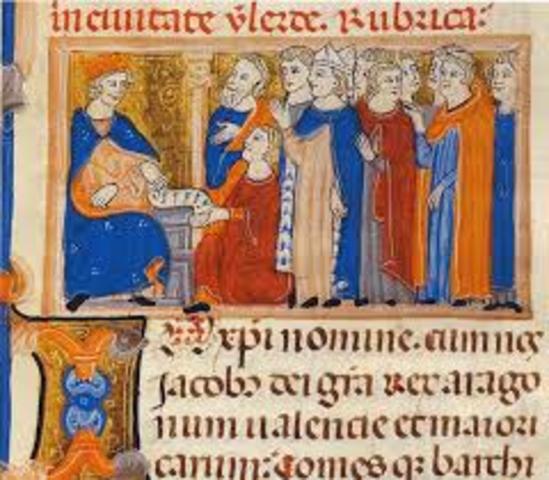 in ciuitate ylerde. Rubrica:
IN xpi nomine. cum nos
Jacobꝰ dei gr̃a Rex arago
num ualencie et maiori
carum: Comes qꝫ barchi